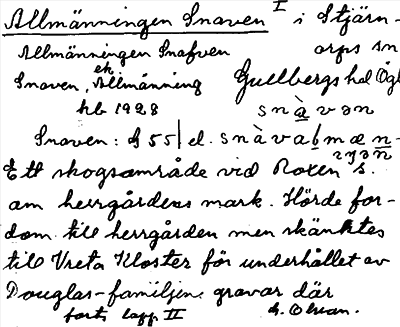 Allmänningen Snaven I i Stjärn-
Allmänningen Snafven orps sn
Snaven, ek Allmänning Gullbergs hd Ögl
hb 1928 snàvən
Snaven: G 55| el. snàvabmæn-
Ett skogsområde vid Roxen s.
om herrgårdens mark. Hörde for-
dom till herrgården men skänktes
till Vreta Kloster för underhållet av
Douglas-familjens gravar där
forts. lapp II